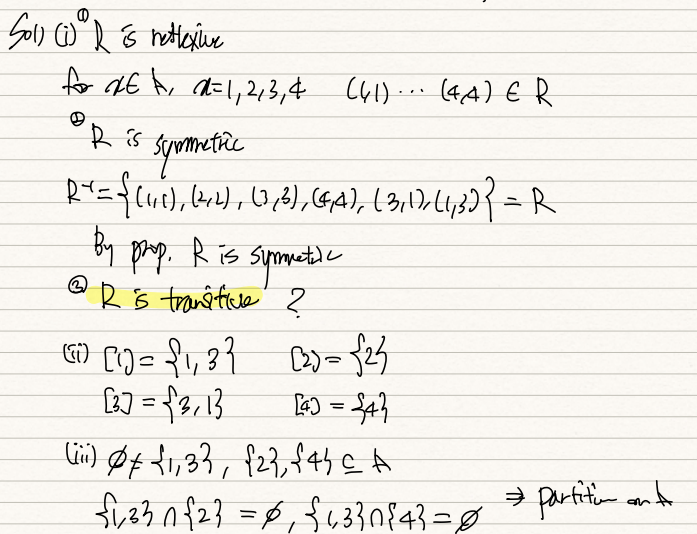 Sol) (i) ① R is reflexive
for x∈A, x=1,2,3,4 (1,1) ⋯ (4,4) ∈ R
② R is symmetric
R⁻¹={(1,1),(2,2),(3,3),(4,4),(3,1),(1,3)} = R
By prop. R is symmetric
③ R is transitive ?
(ii) [1]={1,3} [2]={2}
[3]={3,1} [4]={4}
(iii) ∅≠{1,3},{2},{4}⊆A
{1,3}∩{2}=∅,{1,3}∩{4}=∅ ⇒ partition on A